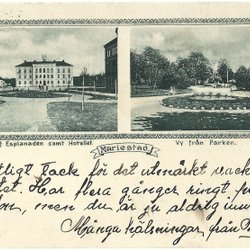 Esplanaden samt Hotellet.
Vy från Parken.
Mariestad.
tligt Tack för det utmärkt vack
Har flera gånger ringt
on, men du är ju aldrig inne
Många hälsningar från